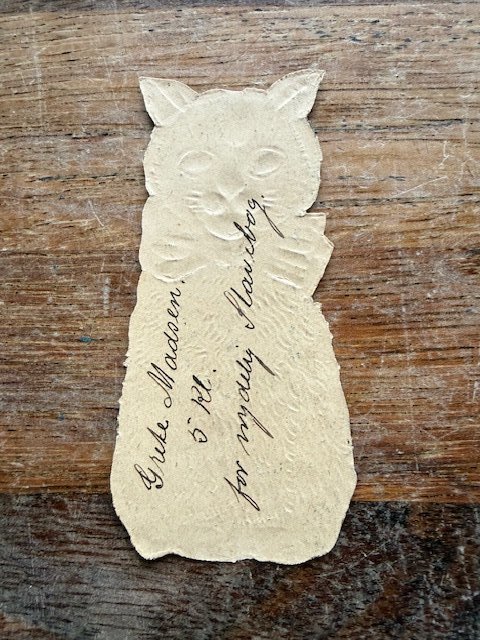 Grete Madsen.
5 kl.
for nydelig Stavebog.